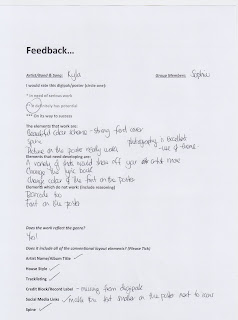 Feedback...
Artist/Band & Song: Kyla Group Members: Sophie
I would rate this digipak/poster (circle one):
* in need of serious work
** definitely has potential
*** On its way to success
The elements that work are:
Beautiful colour scheme - strong front cover
Spine photography is excellent
Picture on the poster really works - use of theme
Elements that need developing are:
A variety of fonts would show off your artist more
Change the lyric book
Change color of the font on the poster
Elements which do not work (include reasoning)
Barcode too
Font on the poster
Does the work reflect the genre?
Yes!
Does it include all of the conventional layout elements? (Please Tick)
Artist Name/Album Title ✓
House Style ✓
Tracklisting ✓
Credit Block/Record Label - missing from digipak
Social Media Links ✓ make the text smaller on the poster next to icons
Spine ✓